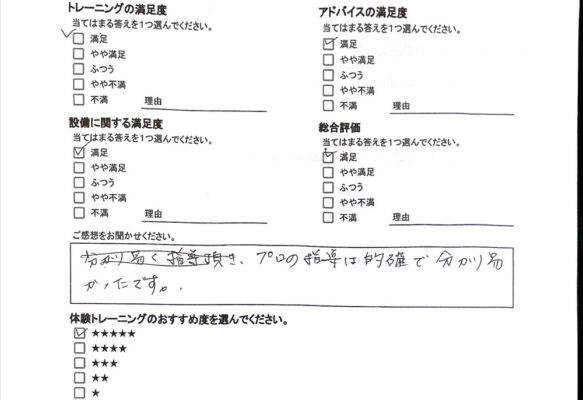 トレーニングの満足度
当てはまる答えを1つ選んでください。
満足
やや満足
ふつう
やや不満
不満 理由
アドバイスの満足度
当てはまる答えを1つ選んでください。
満足
やや満足
ふつう
やや不満
不満 理由
設備に関する満足度
当てはまる答えを1つ選んでください。
満足
やや満足
ふつう
やや不満
不満 理由
総合評価
当てはまる答えを1つ選んでください。
満足
やや満足
ふつう
やや不満
不満 理由
ご感想をお聞かせください。
分かり易く指導頂き、プロの指導は的確で分かり易
かったです。
体験トレーニングのおすすめ度を選んでください。
★★★★★
★★★★
★★★
★★
★